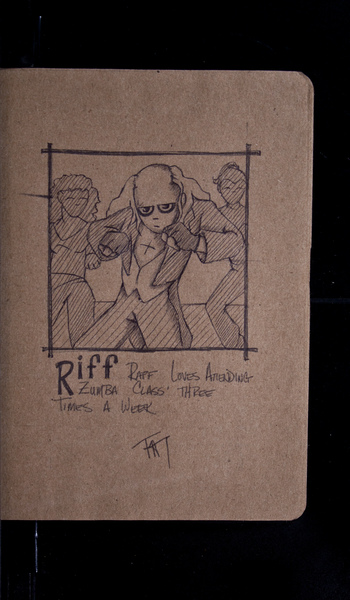 Riff RAFF LOVES ATTENDING
ZUMBA CLASS' THREE
TIMES A WEEK